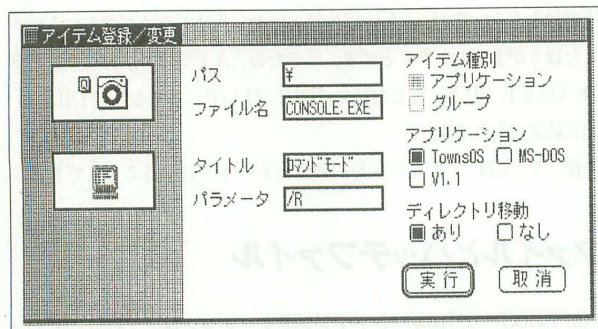 アイテム登録/変更
Q
パス ¥
ファイル名 CONSOLE.EXE
タイトル コマンドモード
パラメータ /R
アイテム種別
アプリケーション
グループ
アプリケーション
TownsOS MS-DOS
V1.1
ディレクトリ移動
あり なし
実行 取消
ファイルとバッチファイル